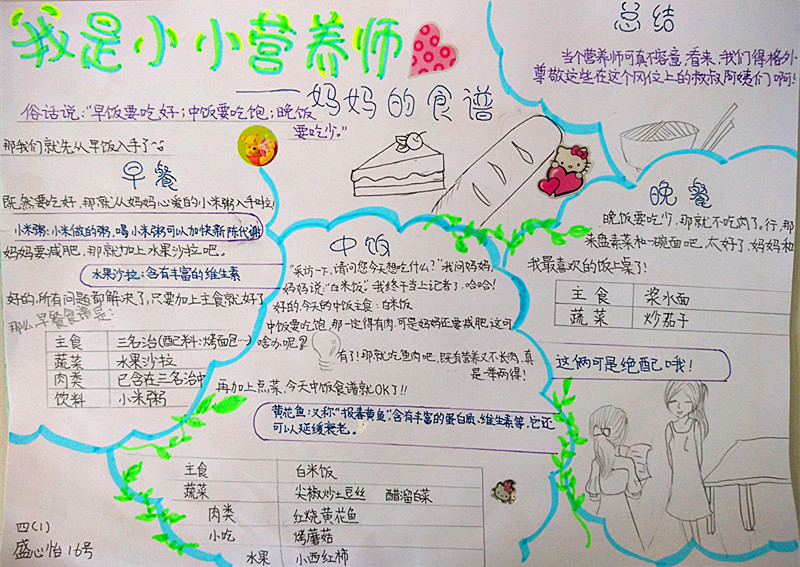 我是小小营养师
——妈妈的食谱
俗话说:“早饭要吃好;中饭要吃饱;晚饭
要吃少。”
那我们就先从早饭入手了~
早餐
既然要吃好,那就从妈妈心爱的小米粥入手啦!
小米粥:小米做的粥,喝小米粥可以加快新陈代谢
妈妈要减肥,那就加上水果沙拉吧。
水果沙拉:含有丰富的维生素
好的,所有问题都解决了,只要加上主食就好了
那么早餐食谱是:
主食 三名治(配料:烤面包…)
蔬菜 水果沙拉
肉类 已含在三名治中
饮料 小米粥
中饭
“采访一下,请问您今天想吃什么?”我问妈妈,
妈妈说:“白米饭”,我终于当上记者了,哈哈!
好的,今天的中饭主食:白米饭
中饭要吃饱,那一定得有肉,可是妈妈还要减肥,这可
啥办呢?
有了!那就吃鱼肉吧,既有营养又不长肉,真
是一举两得!
再加上点菜,今天中饭食谱就OK了!!
黄花鱼:又称“报春黄鱼”,含有丰富的蛋白质、维生素等,它还
可以延缓衰老。
主食 白米饭
蔬菜 尖椒炒土豆丝 醋溜白菜
肉类 红烧黄花鱼
小吃 烤蘑菇
水果 小西红柿
总结
当个营养师可真不容意,看来,我们得格外
尊敬这些在这个冈位上的叔叔阿姨们啊!
晚餐
晚饭要吃少,那就不吃肉了。行,那
来盘素菜和一碗面吧,太好了,妈妈和
我最喜欢的饭上桌了!
主食 浆水面
蔬菜 炒茄子
这俩可是绝配哦!
四(1)
盛心怡 16号